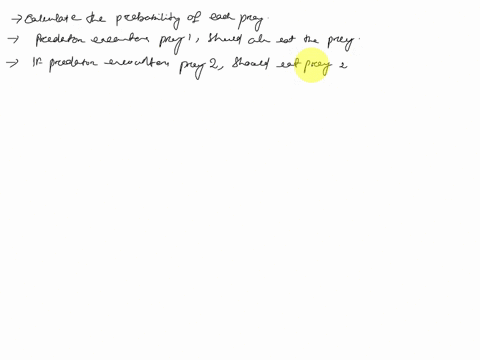 → Calculate the probability of each prey.
→ Predator encounters prey 1, should eat the prey.
→ If predator encounters prey 2, should eat prey 2